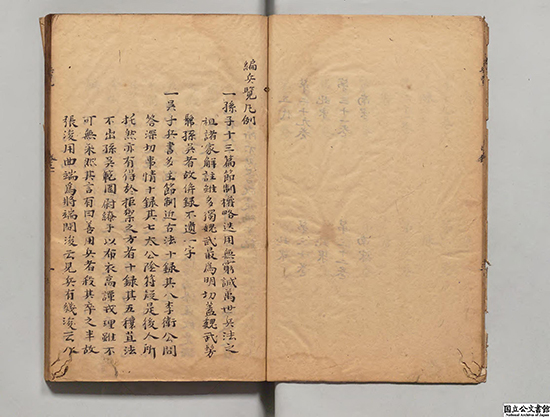 編兵覽凡例
一孫子十三篇節制機略迭用無窮誠萬世兵法之
祖諸家解註雖多獨魏武最爲明切蓋魏武
孫吳者故併錄不遺一字
一吳子兵書多主節制近古法十錄其八李衛公問
答深切事情十錄其七太公陰符疑是後人所
托然亦有得於拒禦之方者十錄其五穰苴法
不出孫吳範圍尉繚子以布衣高譚或理雖不
可無采然其言有曰善用兵者殺其卒之半故
張浚用曲端爲將端閱浚云見兵有幾浚云
国立公文書館
National Archives of Japan